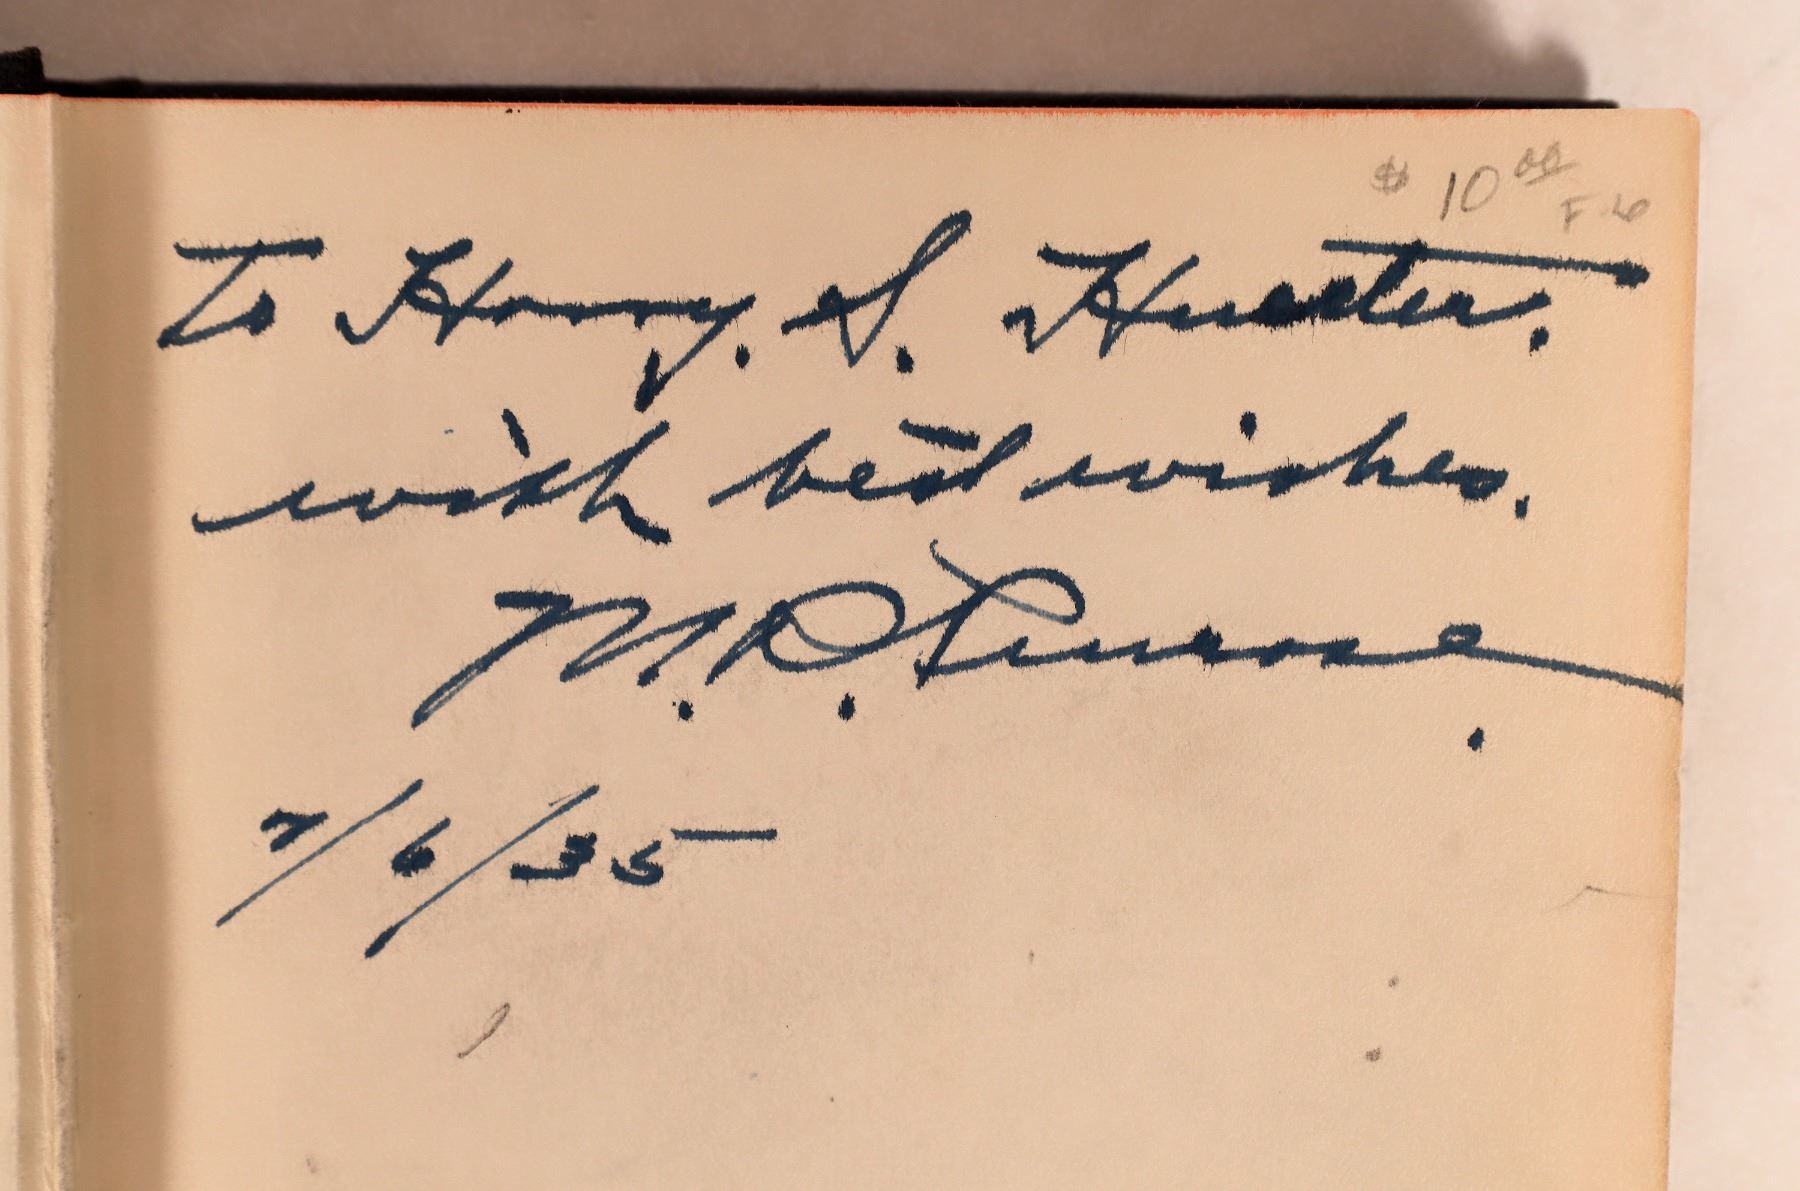 $ 10 00
F.6
To Harry. S. Hunter.
with best wishes.
M.R. Penrose.
7/6/35